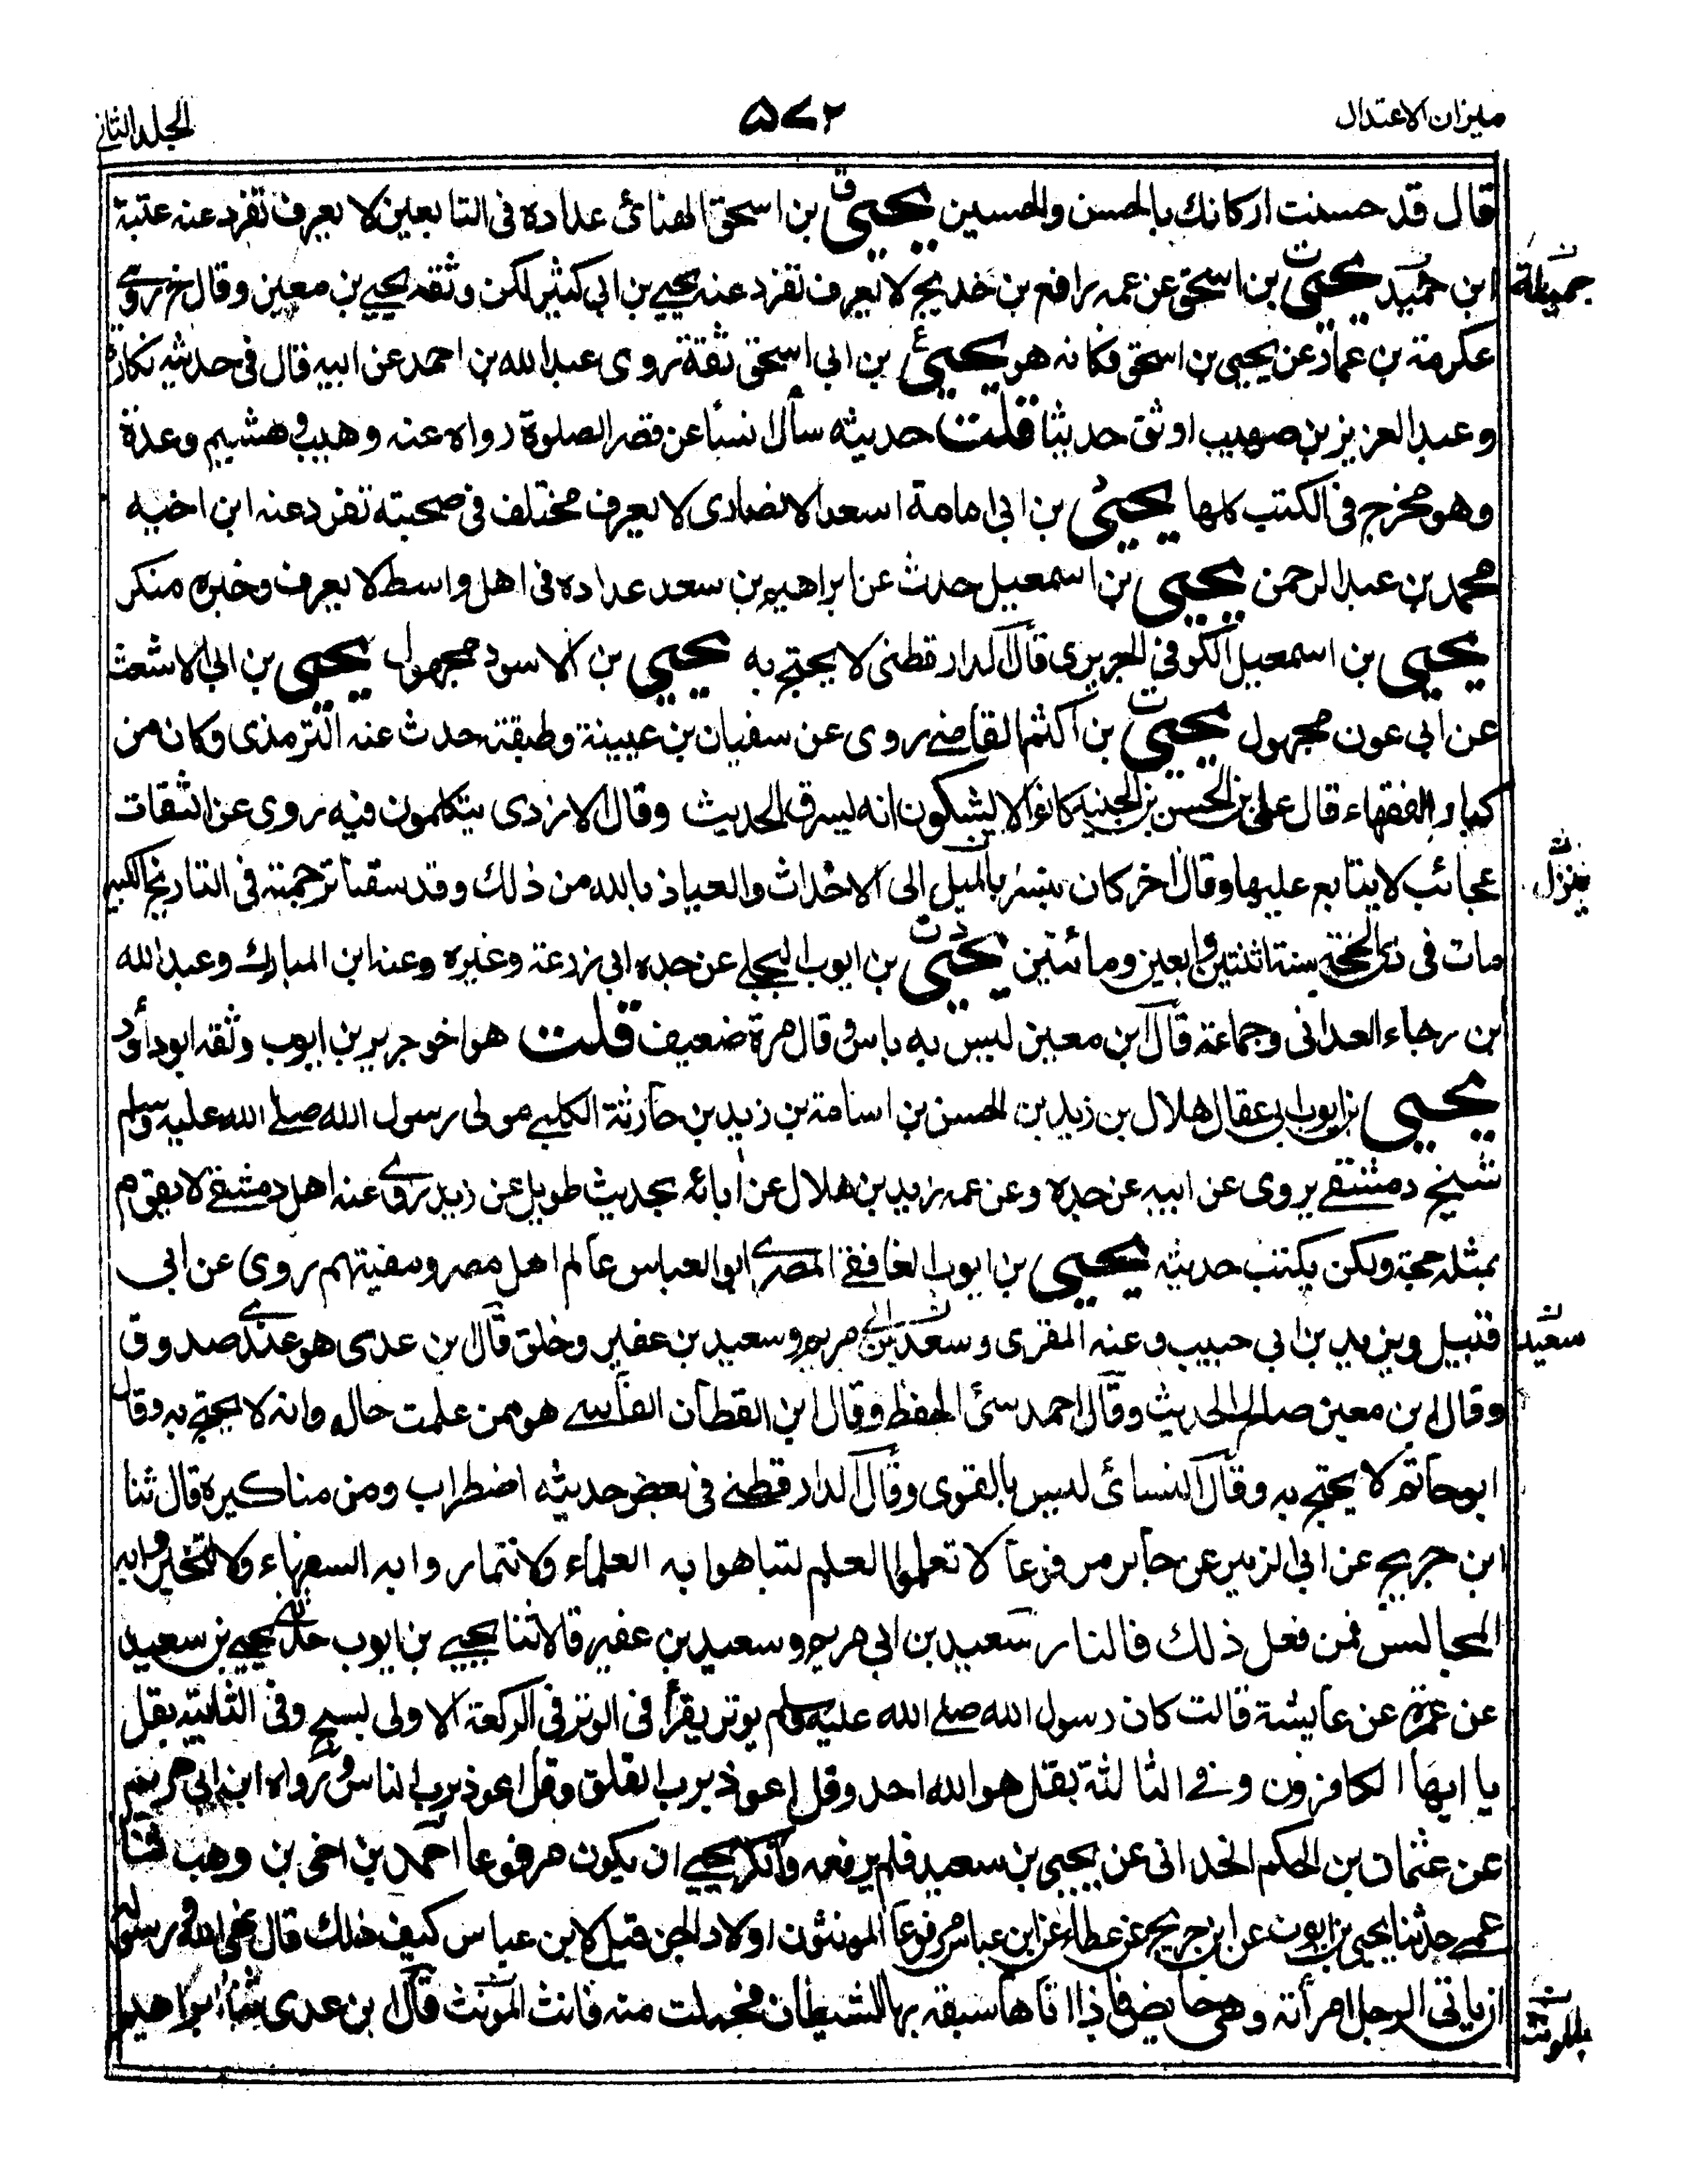 ميزان الاعتدال
۵۷۲
الجلد الثاني
قال قد حسنت اركانك بالحسن والحسين يحيى ق بن اسحق الهنائ عداده فى التابعين لا يعرف تفرد عنه عتبة
ابن حميد يحيى ت بن اسحق عن عمه رافع بن خديج لا يعرف تفرد عنه يحيى بن ابى كثير لكن وثقه يحيى بن معين وقال خ روى
جميلة
عكرمة بن عمار عن يحيى بن اسحق فكانه هو يحيى ع بن ابى اسحق ثقة روى عبد الله بن احمد عن ابيه قال فى حديثه نكارة
وعبد العزيز بن صهيب اوثق حديثا قلت حديثه سأل انسا عن قصر الصلوة رواه عنه وهيب وهشيم وعدة
وهو مخرج فى الكتب كلها يحيى بن ابى امامة اسعد الانصارى لا يعرف مختلف فى صحبته تفرد عنه ابن اخيه
محمد بن عبد الرحمن يحيى بن اسمعيل حدث عن ابراهيم بن سعد عداده فى اهل واسط لا يعرف وخبره منكر
يحيى بن اسمعيل الكوفى الجريرى قال الدارقطنى لا يحتج به يحيى بن الاسود مجهول يحيى بن ابى الاشعث
عن ابى عون مجهول يحيى ت بن اكثم القاضى روى عن سفيان بن عيينة وطبقته حدث عنه الترمذى وكان من
كبار الفقهاء قال على بن الحسن بن الجنيد كانوا لا يشكون انه يسرق الحديث وقال الازدى يتكلمون فيه روى عن الثقات
عجائب لا يتابع عليها وقال اخر كان بالميل الى الاحداث والعياذ بالله من ذلك وقد سقنا ترجمته فى التاريخ الكبير
مات فى ذى الحجة سنة اثنتين واربعين ومائتين يحيى د ت بن ايوب البجلى عن جده ابى زرعة وغيره وعنه ابن المبارك وعبد الله
بن رجاء الغدانى وجماعة قال ابن معين ليس به باس وقال مرة ضعيف قلت هو اخو جرير بن ايوب وثقه ابو داود
يحيى بن ايوب ابى عقال هلال بن زيد بن الحسن بن اسامة بن زيد بن حارثة الكلبى مولى رسول الله صلى الله عليه وسلم
شيخ دمشقى يروى عن ابيه عن جده وعن عمه زيد بن هلال عن ابائه بحديث طويل عن زيد روى عنه اهل دمشق لا يقوم
بمثله حجة ولكن يكتب حديثه يحيى بن ايوب الغافقى المصرى ابو العباس عالم اهل مصر ومفتيهم روى عن ابى
قبيل ويزيد بن ابى حبيب وعنه المقرى وسعد بن ابى مريم وسعيد بن عفير وخلق قال بن عدى هو عندى صدوق
سعيد
وقال ابن معين صالح الحديث وقال احمد سئ الحفظ وقال ابن القطان الفاسى هو ممن علمت حاله وانه لا يحتج به وقال
ابو حاتم لا يحتج به وقال النسائ ليس بالقوى وقال الدارقطنى فى بعض حديثه اضطراب ومن مناكيره قال ثنا
ابن جريج عن ابى الزبير عن جابر مرفوعا لا تعلموا العلم لتباهوا به العلماء ولا تمار وا به السفهاء ولا لتخيروا به
المجالس فمن فعل ذلك فالنار سعيد بن ابى مريم وسعيد بن عفير قالا ثنا يحيى بن ايوب حدثنى يحيى بن سعيد
عن عمرة عن عايشة قالت كان رسول الله صلى الله عليه وسلم يوتر يقرأ فى الوتر فى الركعة الاولى بسبح وفى الثانية بقل
يا ايها الكافرون وفى الثالثة بقل هو الله احد وقل اعوذ برب الفلق وقل اعوذ برب الناس ورواه ابن ابى مريم
عن عثمان بن الحكم الجذامى عن يحيى بن سعيد فلم يرفعه وانكر يحيى ان يكون مرفوعا احمد بن اخى بن وهب ثنا
عمى حدثنا يحيى بن ايوب عن ابن جريج عن عطاء عن ابن عباس مرفوعا المونثون اولاد الجن قيل لابن عباس كيف ذلك قال نهى الله ورسوله
ان ياتى الرجل امرأته وهى حايض فاذا اتاها سبقه بها الشيطان فحملت منه فانث المونث قال ابن عدى ثنا ابراهيم